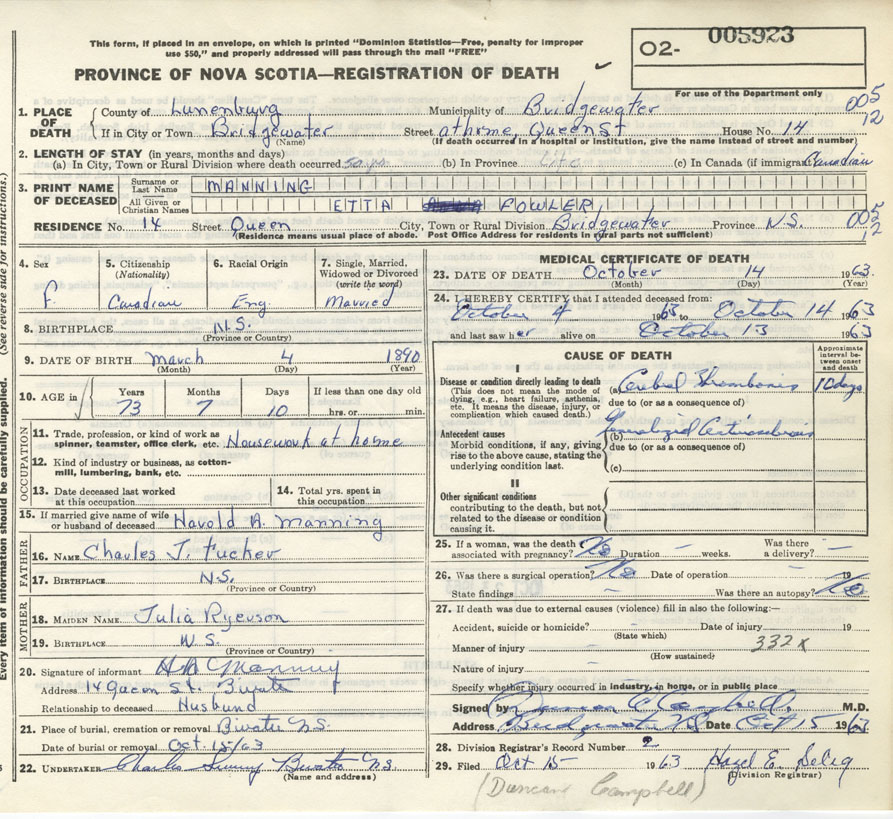 This form, if placed in an envelope, on which is printed "Dominion Statistics—Free, penalty for improper
use $50," and properly addressed will pass through the mail "FREE"
PROVINCE OF NOVA SCOTIA—REGISTRATION OF DEATH
O2- 005923
For use of the Department only
005
12
1. PLACE OF DEATH
County of Lunenburg Municipality of Bridgewater
If in City or Town Bridgewater Street at home, Queen St House No. 14
(Name) (If death occurred in a hospital or institution, give the name instead of street and number)
2. LENGTH OF STAY (in years, months and days)
(a) In City, Town or Rural Division where death occurred (b) In Province Life (c) In Canada (if immigrant) Canadian
3. PRINT NAME OF DECEASED
Surname or Last Name MANNING
All Given or Christian Names ETTA FOWLER
RESIDENCE No. 14 Street Queen City, Town or Rural Division Bridgewater Province N.S.
(Residence means usual place of abode. Post Office Address for residents in rural parts not sufficient)
005
12
4. Sex
f.
5. Citizenship
(Nationality)
Canadian
6. Racial Origin
Eng.
7. Single, Married,
Widowed or Divorced
(write the word)
Married
8. BIRTHPLACE N.S.
(Province or Country)
9. DATE OF BIRTH March 4 1890
(Month) (Day) (Year)
10. AGE in Years Months Days If less than one day old
73 7 10 hrs. or min.
OCCUPATION
11. Trade, profession, or kind of work as
spinster, office clerk, etc. Housework at home
12. Kind of industry or business, as cotton-
mill, lumbering, bank, etc.
13. Date deceased last worked
at this occupation
14. Total yrs. spent in
this occupation
15. If married give name of wife
or husband of deceased Harold A. Manning
FATHER
16. NAME Charles J. Tucker
17. BIRTHPLACE N.S.
(Province or Country)
MOTHER
18. MAIDEN NAME Julia Ryerson
19. BIRTHPLACE N.S.
(Province or Country)
20. Signature of informant H A Manning
Address 14 Queen St. Bwater
Relationship to deceased Husband
21. Place of burial, cremation or removal Bwater N.S.
Date of burial or removal Oct 15/63
22. UNDERTAKER Charles Bwater N.S.
(Name and address)
Every item of information should be carefully supplied. (See reverse side for instructions.)
MEDICAL CERTIFICATE OF DEATH
23. DATE OF DEATH October 14 1963.
(Month) (Day) (Year)
24. I HEREBY CERTIFY that I attended deceased from:
October 4 1963 to October 14 1963
and last saw her alive on October 13 1963
CAUSE OF DEATH
Approximate
interval be-
tween onset
and death
I
Disease or condition directly leading to death
(This does not mean the mode of
dying, e.g., heart failure, asthenia,
etc. It means the disease, injury, or
complication which caused death.)
(a) Cerebral Thrombosis 10 days
due to (or as a consequence of)
Antecedent causes
Morbid conditions, if any, giving
rise to the above cause, stating the
underlying condition last.
(b) Generalized
due to (or as a consequence of)
(c)
II
Other significant conditions
contributing to the death, but not
related to the disease or condition
causing it.
25. If a woman, was the death
associated with pregnancy? No Duration — weeks. Was there
a delivery? —
26. Was there a surgical operation? No Date of operation — 19
State findings — Was there an autopsy? No
27. If death was due to external causes (violence) fill in also the following:—
Accident, suicide or homicide? Date of injury 19
(State which)
332X
Manner of injury
(How sustained)
Nature of injury
Specify whether injury occurred in industry, in home, or in public place
Signed by Duncan C Campbell M.D.
Address Bridgewater N.S. Date Oct 15 1963
28. Division Registrar's Record Number 2
29. Filed Oct 15 1963 Hazel E. Selig
(Division Registrar)
(Duncan Campbell)